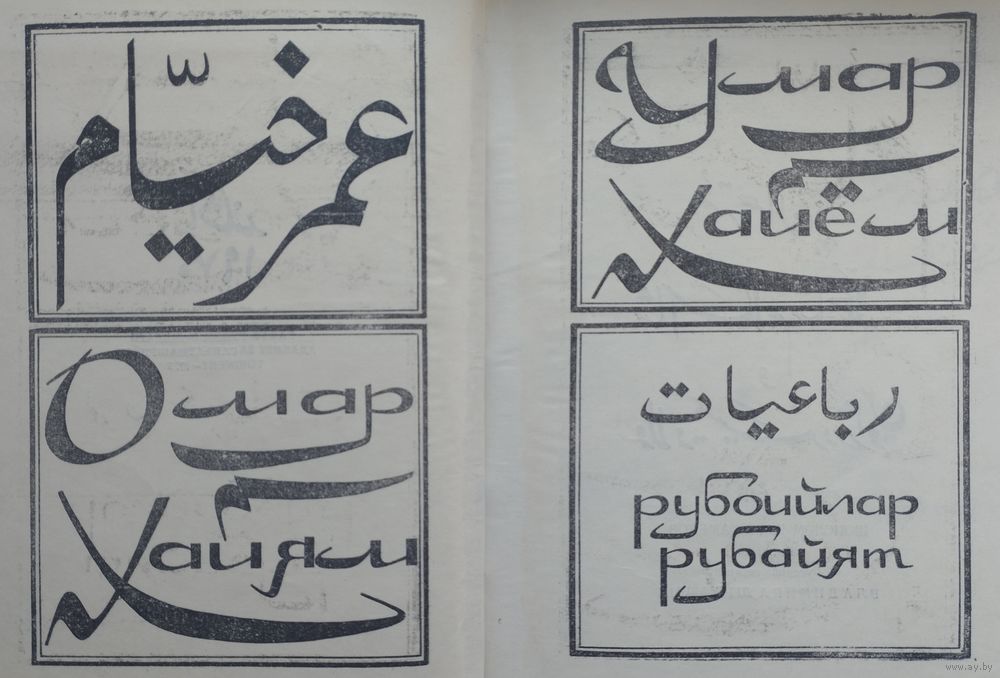 عمر خيّام
Омар
Хайям
Умар
Хайём
رباعيات
рубоийлар
рубайят
www.ay.by